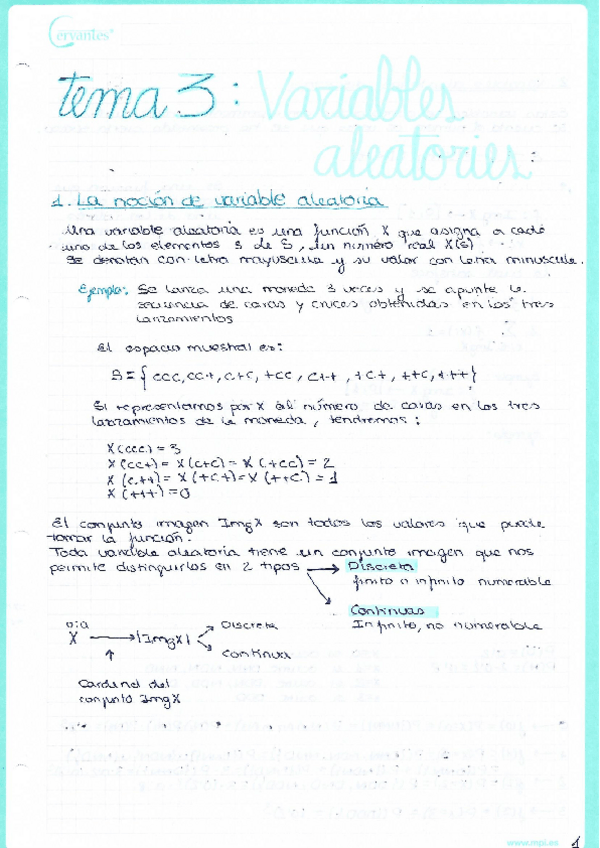 Cervantes
tema 3: Variables
aleatories
1. La noción de variable aleatoria
Una variable aleatoria es una función X que asigna a cada
uno de los elementos s de S, un número real X(s)
Se denotan con letra mayuscula y su valor con letra minuscula.
Ejemplo: Se lanza una moneda 3 veces y se apunta la
secuencia de caras y cruces obtenidas en los tres
lanzamientos
El espacio muestral es:
S = { ccc, cc+, c+c, +cc, c++, +c+, ++c, +++}
Si representamos por X al número de caras en los tres
lanzamientos de la moneda, tendremos:
X(ccc) = 3
X(cc+) = X(c+c) = X(+cc) = 2
X(c++) = X(+c+) = X(++c) = 1
X(+++) = 0
El conjunto imagen ImgX son todos los valores que puede
tomar la función.
Toda variable aleatoria tiene un conjunto imagen que nos
permite distinguirlos en 2 tipos → Discreta
finito o infinito numerable
Continuas
Infinito, no numerable
v.a
X → |ImgX| Discreta
continua
↑
Cardinal del
conjunto ImgX
www.mpi.es
1